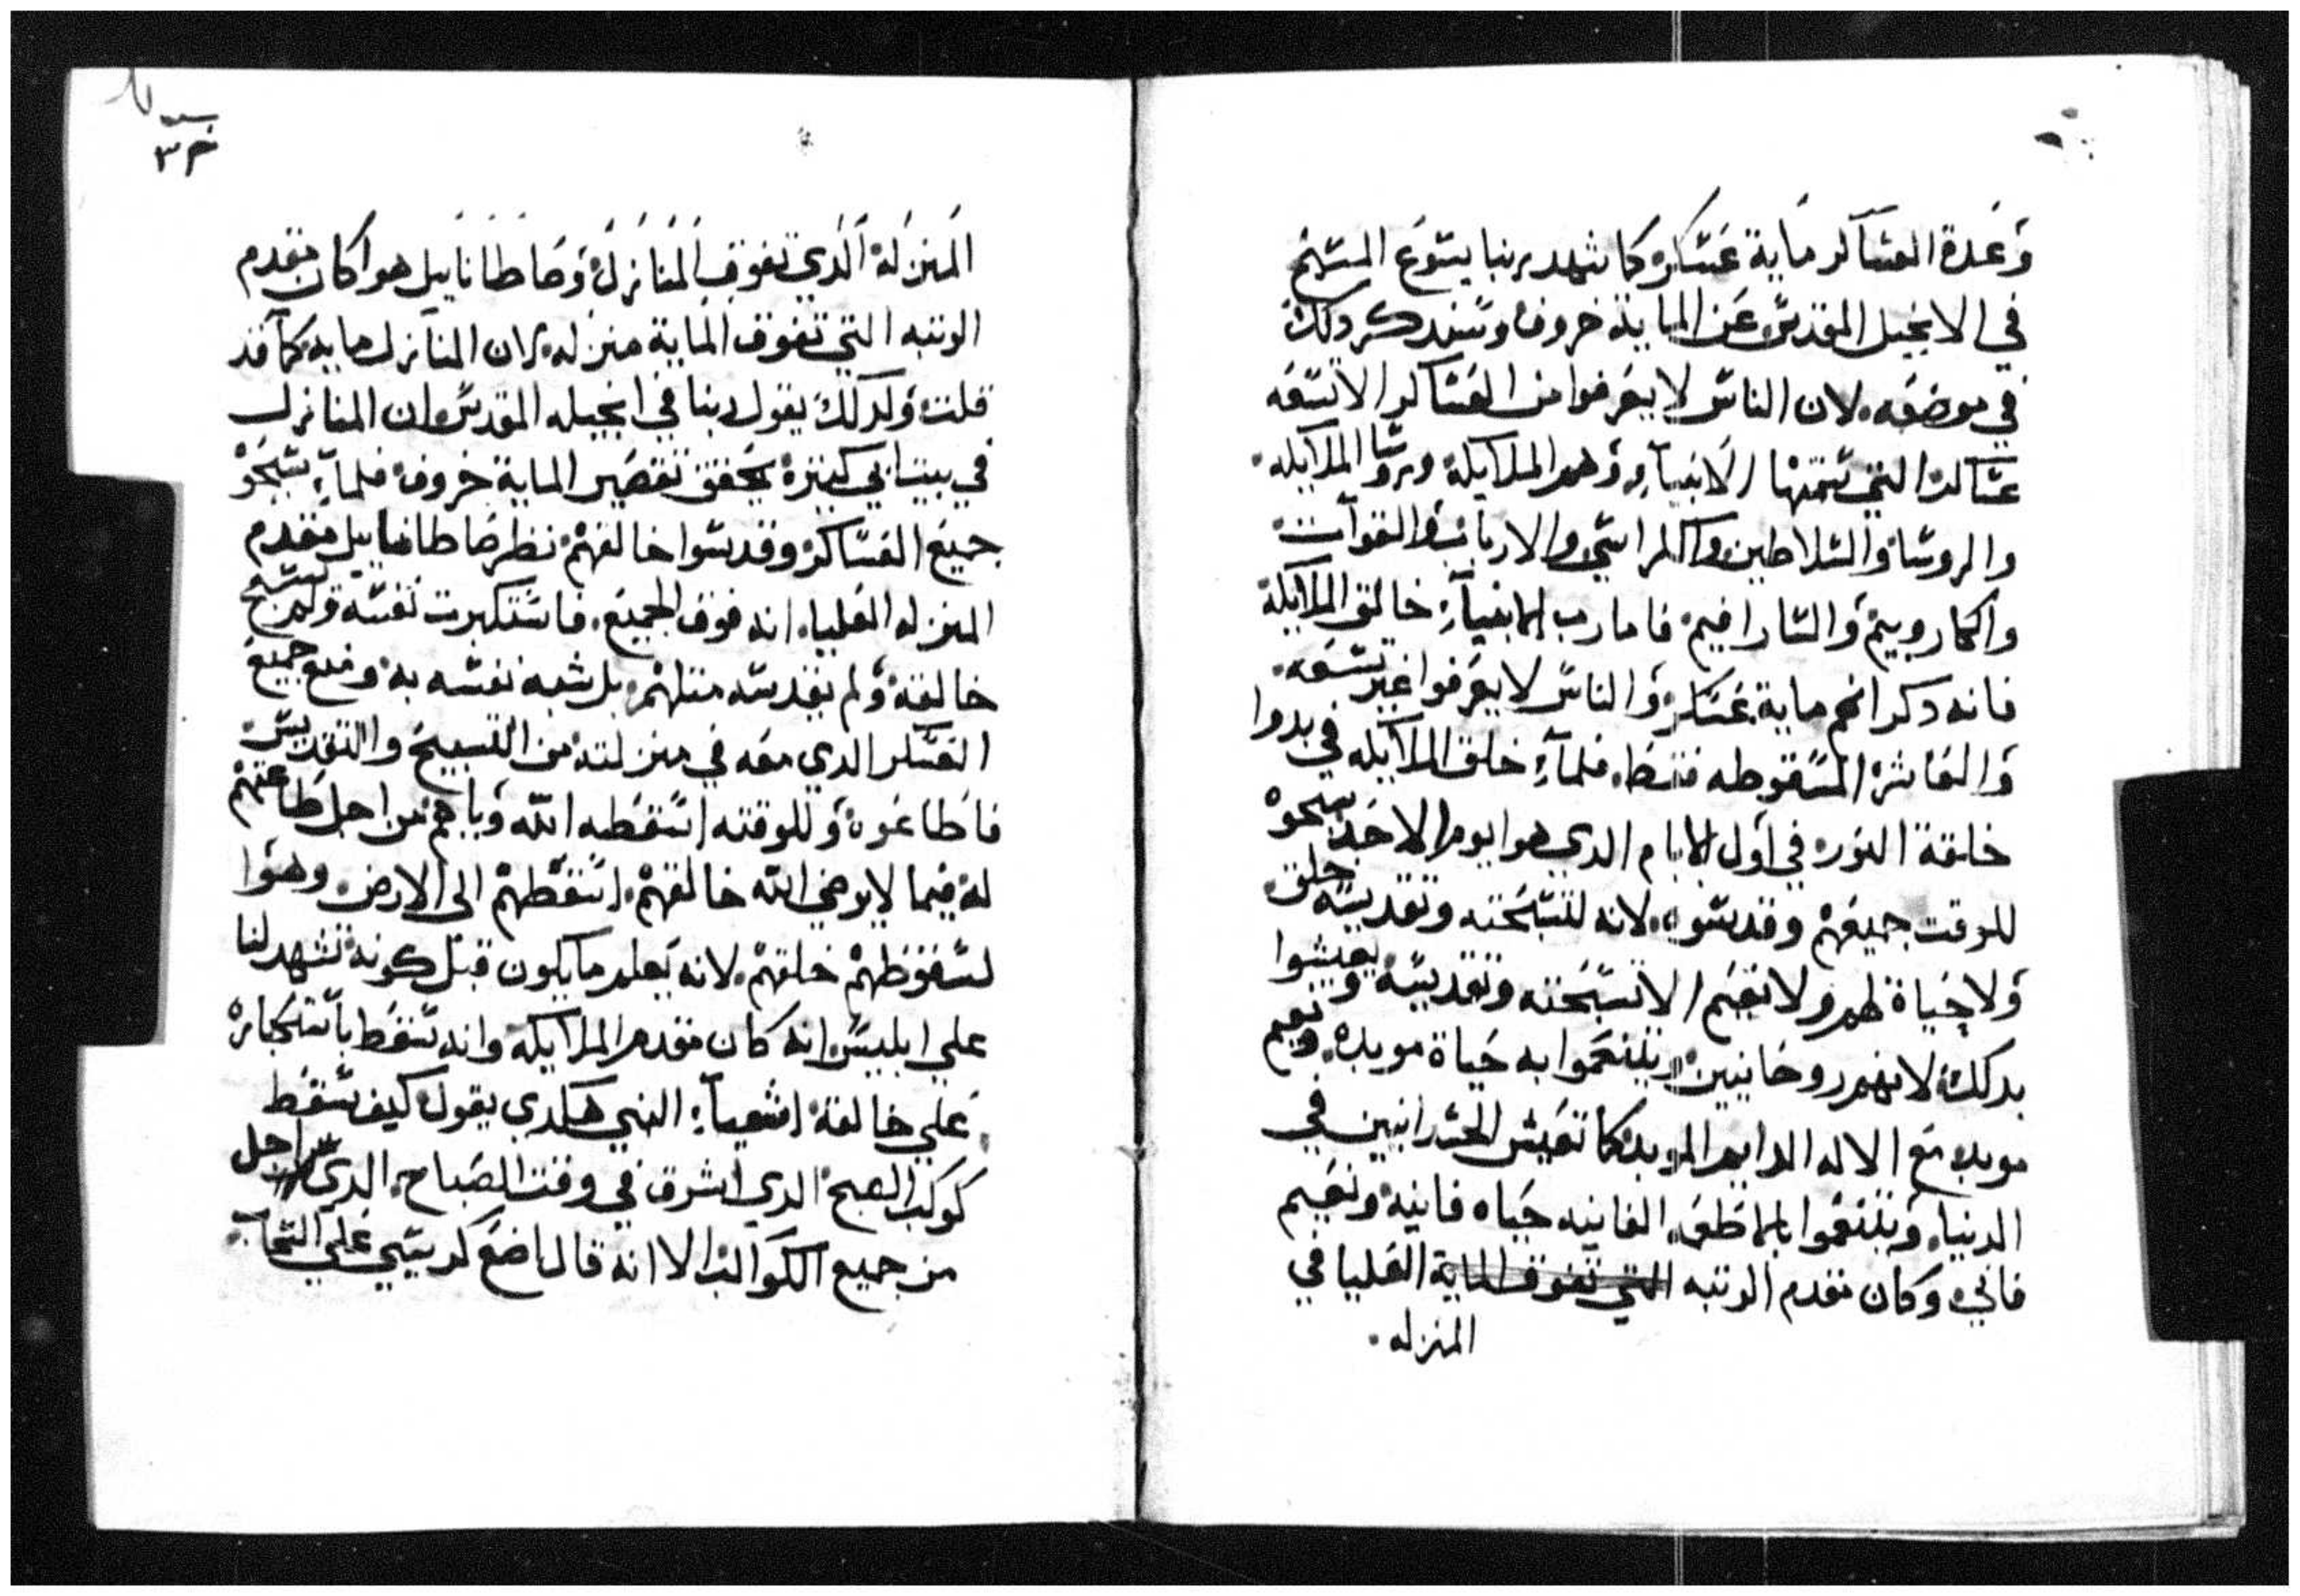 وعدة العساكر ماية عسكر كما شهد ربنا يسوع المسيح
في الانجيل المقدس عن الماية خروف وسندكر دلك
في موضعه لان الناس لا يعرفوا من العساكر الا تسعه
عساكر التي تسمتها الانبياء وهم الملايكة وروسا الملايكه
والروسا والسلاطين والكراسي والارباب والقوات
والكاروبيم والسارافيم فاما رب الانبياء خالق الملايكة
فانه دكر انهم ماية عسكر والناس لا يعرفوا غير تسعه
والعاشرة المسقوطه فقط فلما خلق الملايكه في بدوا
خلقة النور في اول الايام الدي هوا يوم الاحد سبحوه
للوقت جميعهم وقدسوه لانه لتسبحته وتقديسه خلق
ولا حياة لهم ولا نعيم الا تسبحته وتقديسه ويعيشوا
بدلك لانهم روحانيين يتنعموا به حياة موبده ونعيم
موبد مع الاله الدايم الموبد كما تعيش الجسدانيين في
الدنيا ويتنعموا بالاطعمه الفانيه حياه فانية ونعيم
فاني وكان مقدم الرتبه التي تفوق الماية العليا في
المنزله
٣
المنزلة الدي تفوق المنازل وصاطاناييل هوا كان مقدم
الرتبه التي تفوق الماية منزله لان المنازل مايه كما قد
قلت ولدلك يقول ربنا في انجيله المقدس ان المنازل
في بيت ابي كتيرة يحقق تفصير الماية خروف فلما سبحو
جميع العساكر وقدسوا خالقهم نظر صاطاناييل مقدم
المنزله العليا انه فوق الجميع فاستكبرت نفسه ولم يسبح
خالقه ولم يقدسه متلهم بل شبه نفسه به ومنع جميع
العسكر الدي معه في منزلته من التسبيح والتقديس
فاطاعوه وللوقته اسقطه الله وياهم من اجل طاعتهم
له فيما لا يرضي الله خالقهم اسقطهم الى الارض وهوا
لسقوطهم خلقهم لانه يعلم ما يكون قبل كونه تشهد لنا
علي ابليس انه كان مقدم الملايكة وانه سقط باستكباره
علي خالقه اشعياء النبي هكدي يقول كيف سقط
كوكب الصبح الدي اشرق في وقت الصباح الدي اجل
من جميع الكواكب الا انه قال اضع كرسيي علي السحاب